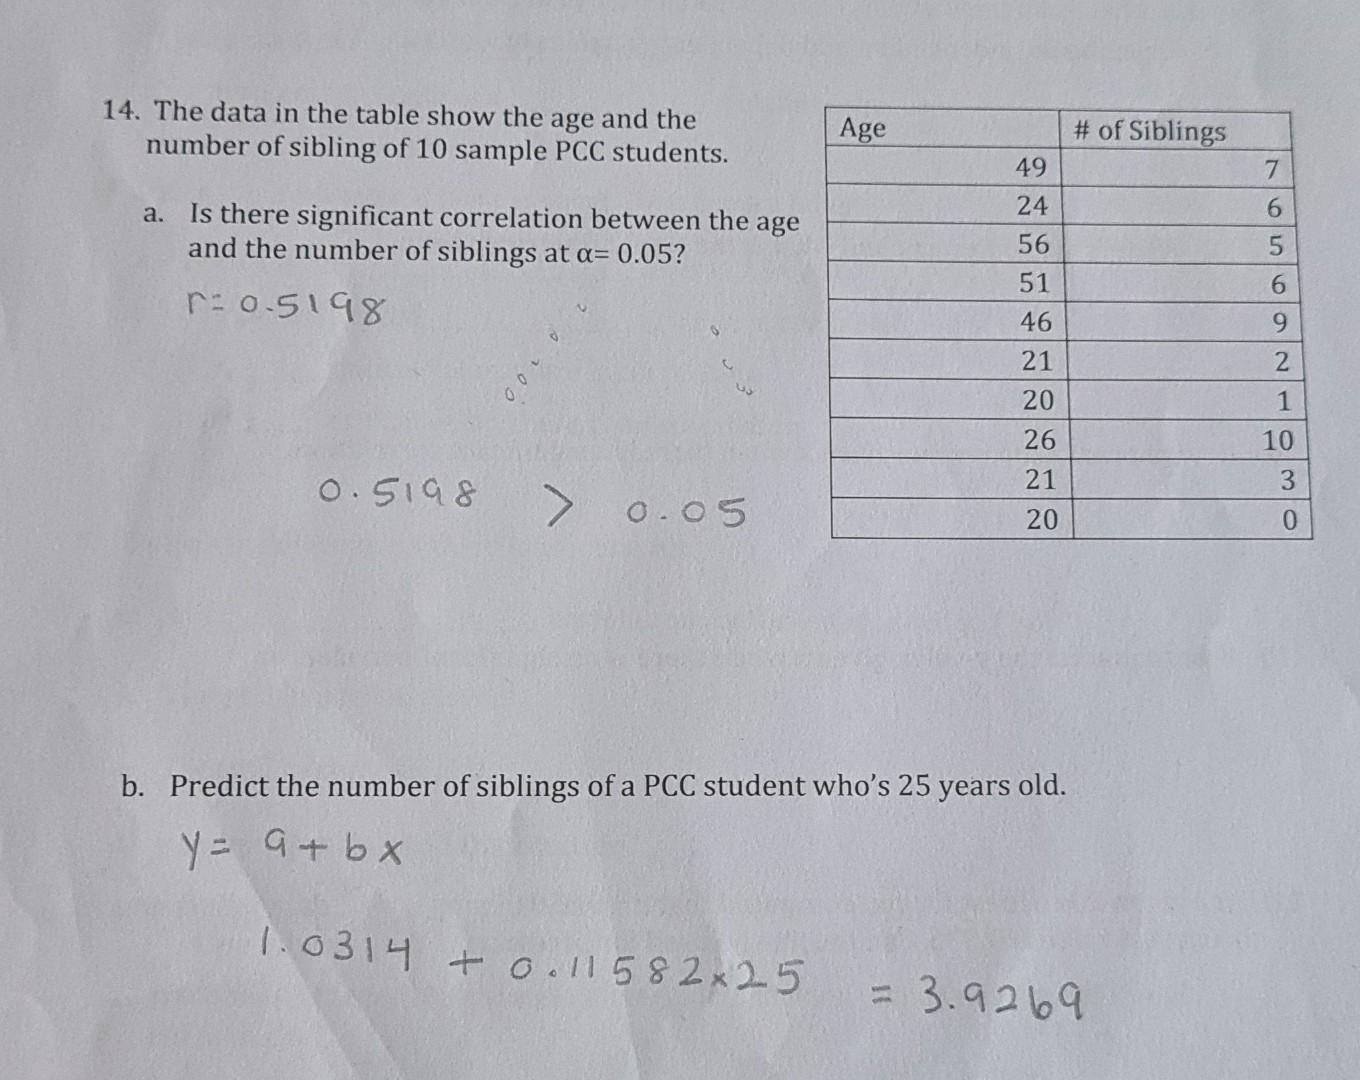 14. The data in the table show the age and the
number of sibling of 10 sample PCC students.
a. Is there significant correlation between the age
and the number of siblings at α= 0.05?
r= 0.5198
0.5198 > 0.05
Age # of Siblings
49 7
24 6
56 5
51 6
46 9
21 2
20 1
26 10
21 3
20 0
b. Predict the number of siblings of a PCC student who's 25 years old.
y= a+bx
1.0314 + 0.11582×25 = 3.9269